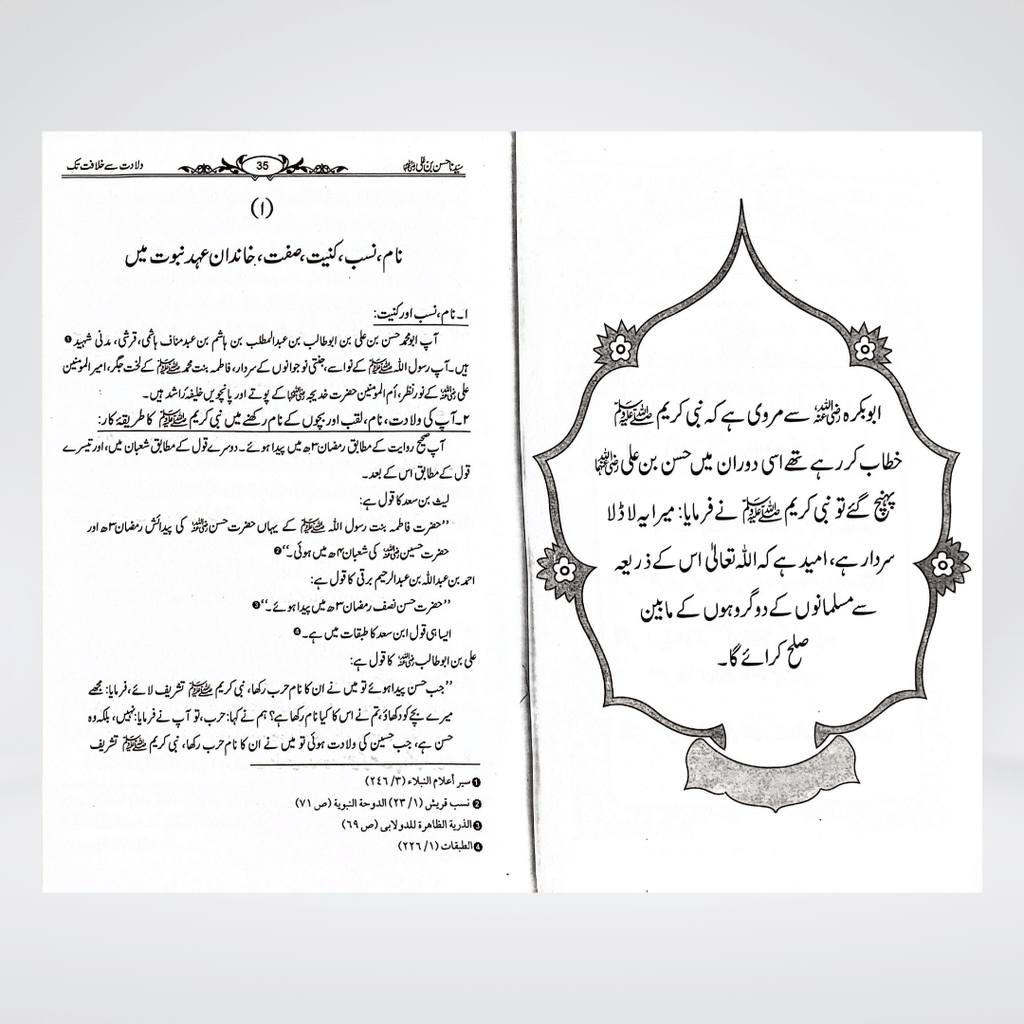 ابوبکرہ رضی اللہ عنہ سے مروی ہے کہ نبی کریم صلی اللہ علیہ وسلم
خطاب کر رہے تھے اسی دوران میں حسن بن علی رضی اللہ عنہما
پہنچ گئے تو نبی کریم صلی اللہ علیہ وسلم نے فرمایا: میرا یہ لاڈلا
سردار ہے، امید ہے کہ اللہ تعالیٰ اس کے ذریعہ
سے مسلمانوں کے دو گروہوں کے مابین
صلح کرائے گا۔
سیدنا حسن بن علی رضی اللہ عنہما 35 ولادت سے خلافت تک
(۱)
نام، نسب، کنیت، صفت، خاندان عہد نبوت میں
۱۔ نام، نسب اور کنیت:
آپ ابومحمد حسن بن علی بن ابوطالب بن عبدالمطلب بن ہاشم بن عبدمناف ہاشمی، قرشی، مدنی شہید ❶
ہیں۔ آپ رسول اللہ صلی اللہ علیہ وسلم کے نواسے، جنتی نوجوانوں کے سردار، فاطمہ بنت محمد صلی اللہ علیہ وسلم کے لخت جگر، امیر المومنین
علی رضی اللہ عنہ کے نور نظر، اُم المومنین حضرت خدیجہ رضی اللہ عنہا کے پوتے اور پانچویں خلیفۂ راشد ہیں۔
۲۔ آپ کی ولادت، نام، لقب اور بچوں کے نام رکھنے میں نبی کریم صلی اللہ علیہ وسلم کا طریقۂ کار:
آپ صحیح روایت کے مطابق رمضان ۳ھ میں پیدا ہوئے۔ دوسرے قول کے مطابق شعبان میں، اور تیسرے
قول کے مطابق اس کے بعد۔
لیث بن سعد کا قول ہے:
’’حضرت فاطمہ بنت رسول اللہ صلی اللہ علیہ وسلم کے یہاں حضرت حسن رضی اللہ عنہ کی پیدائش رمضان ۳ھ اور
حضرت حسین رضی اللہ عنہ کی شعبان ۴ھ میں ہوئی۔‘‘ ❷
احمد بن عبداللہ بن عبدالرحیم برقی کا قول ہے:
’’حضرت حسن نصف رمضان ۳ھ میں پیدا ہوئے۔‘‘ ❸
ایسا ہی قول ابن سعد کا طبقات میں ہے۔ ❹
علی بن ابوطالب رضی اللہ عنہ کا قول ہے:
’’جب حسن پیدا ہوئے تو میں نے ان کا نام حرب رکھا، نبی کریم صلی اللہ علیہ وسلم تشریف لائے، فرمایا: مجھے
میرے بچے کو دکھاؤ، تم نے اس کا کیا نام رکھا ہے؟ ہم نے کہا: حرب، تو آپ نے فرمایا: نہیں، بلکہ وہ
حسن ہے، جب حسین کی ولادت ہوئی تو میں نے ان کا نام حرب رکھا، نبی کریم صلی اللہ علیہ وسلم تشریف
❶ سیر أعلام النبلاء (۳/ ۲٤٦)
❷ نسب قریش (۱/ ۲۳) الدوحة النبویة (ص ۷۱)
❸ الذریة الطاهرة للدولابی (ص ٦۹)
❹ الطبقات (۱/ ۲۲٦)